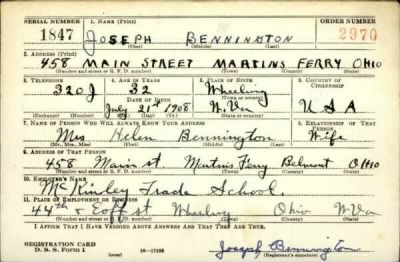 SERIAL NUMBER 1. NAME (Print) ORDER NUMBER
1847 JOSEPH BENNINGTON 2970
(First) (Middle) (Last)
2. ADDRESS (Print)
458 MAIN STREET MARTINS FERRY OHIO
(Number and street or R. F. D. number) (Town) (County) (State)
3. TELEPHONE 4. AGE IN YEARS 5. PLACE OF BIRTH 6. COUNTRY OF CITIZENSHIP
320J 32 Wheeling
DATE OF BIRTH (Town or county)
July 21st 1908 W. Va U S A
(Exchange) (Number) (Mo.) (Day) (Yr.) (State or country)
7. NAME OF PERSON WHO WILL ALWAYS KNOW YOUR ADDRESS 8. RELATIONSHIP OF THAT PERSON
Mrs Helen Bennington Wife
(Mr., Mrs., Miss) (First) (Middle) (Last)
9. ADDRESS OF THAT PERSON
458 Main st Martins Ferry Belmont Ohio
(Number and street or R. F. D. number) (Town) (County) (State)
10. EMPLOYER'S NAME
McKinley Trade School.
11. PLACE OF EMPLOYMENT OR BUSINESS
44th & Eoff st Wheeling Ohio W Va
(Number and street or R. F. D. number) (Town) (County) (State)
I AFFIRM THAT I HAVE VERIFIED ABOVE ANSWERS AND THAT THEY ARE TRUE.
REGISTRATION CARD
D. S. S. Form 1 16—17105 Joseph Bennington
(Registrant's signature)